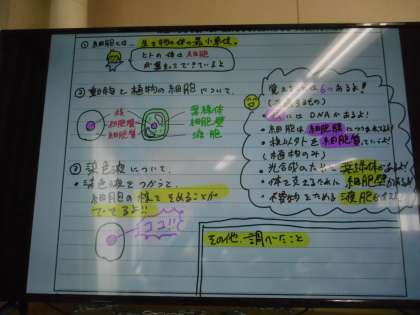 ① 細胞とは、生き物の体の最小単位。
ヒトの体は細胞
が集まってできているよ
② 動物と植物の細胞について、
核
細胞膜
細胞質
葉緑体
細胞壁
液胞
③ 染色液について、
・染色液をつかうと、
細胞の核を そめることが
できるよ!!
ココ!!
覚えることは6つあるよ!
にはDNAがあるよ!
・細胞は細胞膜につつまれてるよ!
・核以外を細胞質っていうよ!
(植物のみ)
・光合成のための葉緑体があるよ!
・体を支えるため 細胞壁があるよ!
液胞
その他、調べたこと